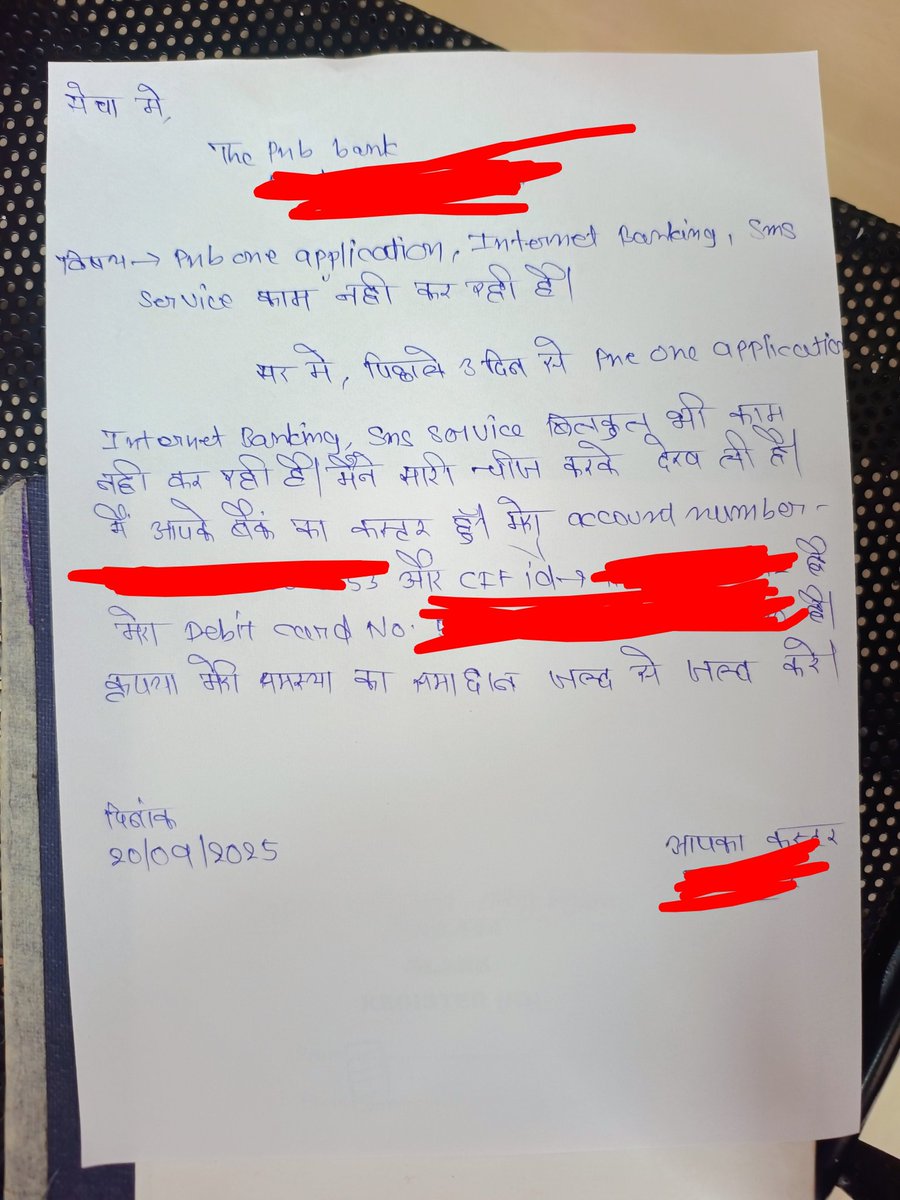 सेवा मे,
The Pnb bank
विषय → Pnb one application, Internet Banking, Sms
Service काम नही कर रही है।
सर मे, पिछले 3 दिन से Pne one application
Internet Banking, Sms service बिलकुल भी काम
नही कर रही है। मैंने सारी चीज करके देख ली है।
मैं आपके बैंक का कस्टर हुँ। मेरा account number -
53 और CIF id →
मेरा Debit card No.
कृपया मेरी समस्या का समाधान जल्द से जल्द करे।
दिनांक
20/09/2025
आपका कस्टर